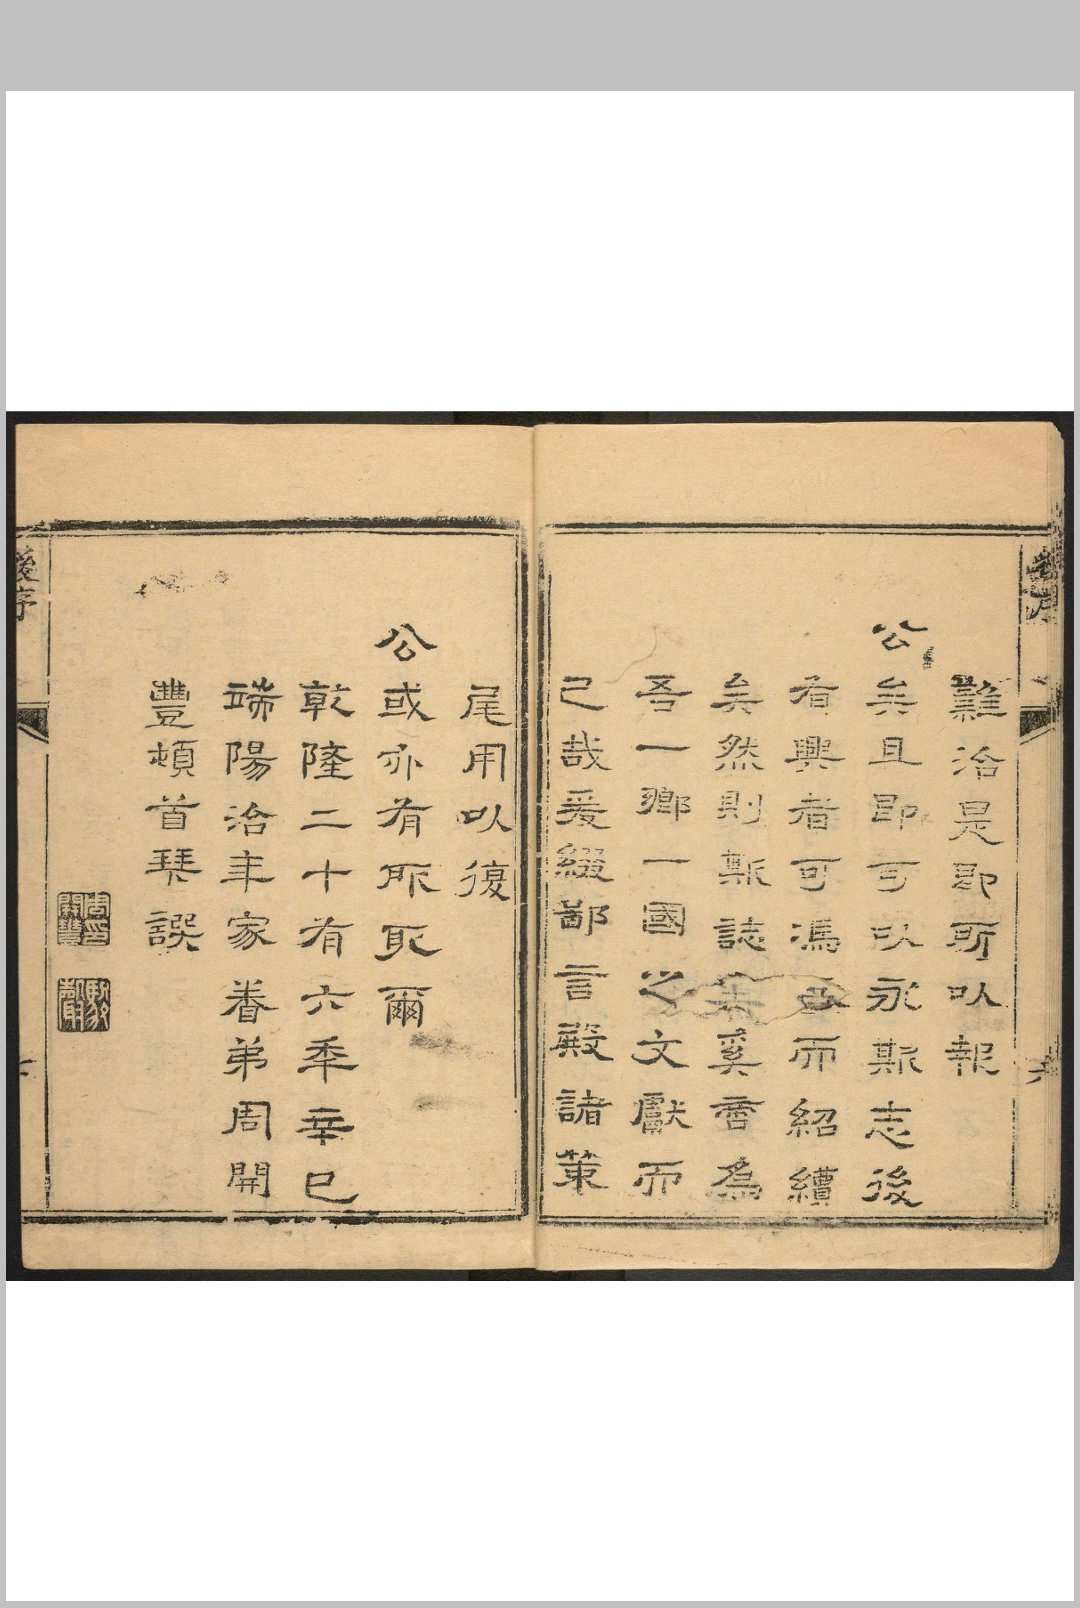 後序
六
難治是即所以報
公矣且即可以永斯志後
有興者可馮而紹續
矣然則斯誌奚啻爲
吾一鄉一國之文獻而
已哉爰綴鄙言殿諸策
尾用以復
公或亦有所取爾
乾隆二十有六年辛巳
端陽治年家眷弟周開
豐頓首拜譔
周印開豐
後序